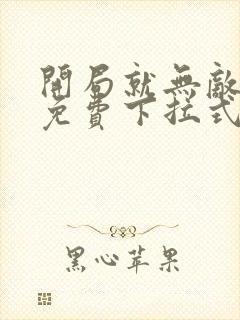 開局就無敵
免費下拉式
黑心苹果